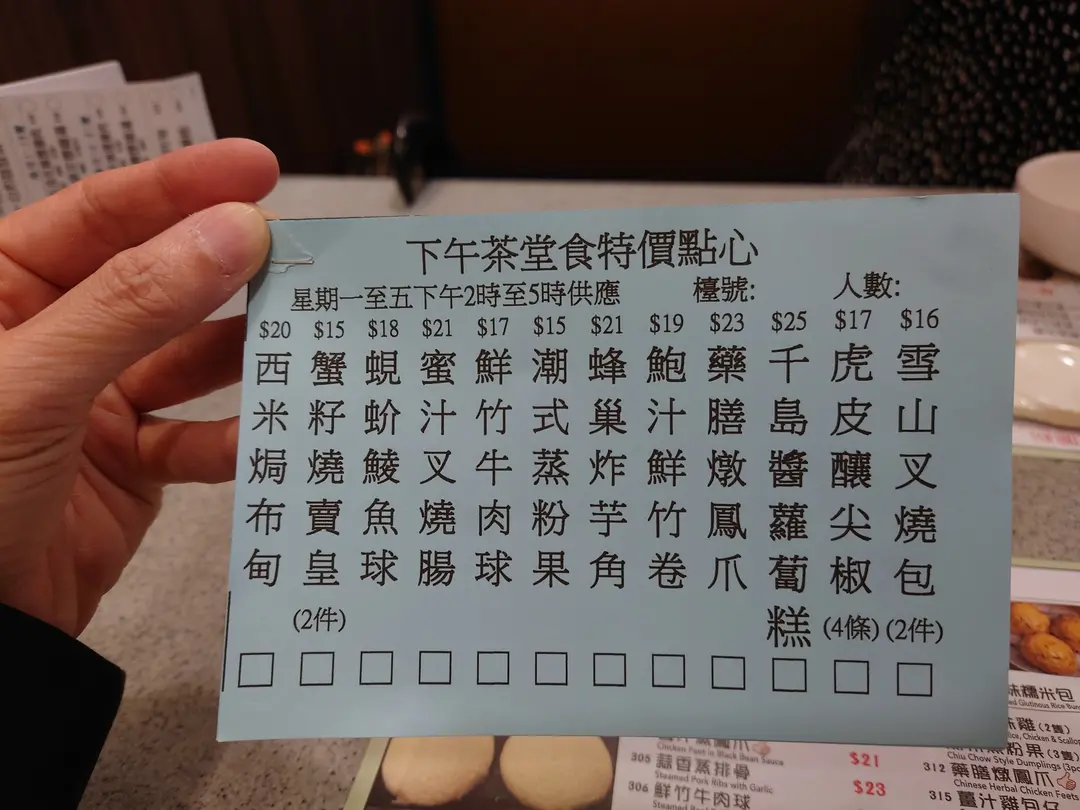 下午茶堂食特價點心
星期一至五下午2時至5時供應 檯號: 人數:
$16 雪山叉燒包 (2件)
$17 虎皮釀尖椒 (4條)
$25 千島醬蘿蔔糕
$23 藥膳燉鳳爪
$19 鮑汁鮮竹卷
$21 蜂巢炸芋角
$15 潮式蒸粉果
$17 鮮竹牛肉球
$21 蜜汁叉燒腸
$18 蜆蚧鯪魚球
$15 蟹籽燒賣皇 (2件)
$20 西米焗布甸
Chicken Feet in Black Bean Sauce
$21
305 蒜香蒸排骨
Steamed Pork Ribs with Garlic
$23
306 鮮竹牛肉球
糯米包
Glutinous Rice Bun
雞 (2隻)
粉果 (3隻)
Chiu Chow Style Dumplings
312 藥膳燉鳳爪
Chinese Herbal Chicken Feets
315 薑汁雞包仔